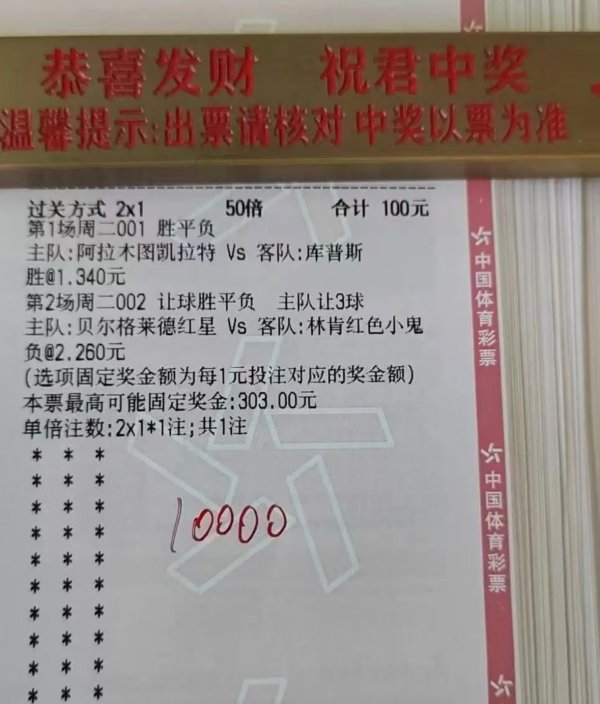 恭喜发财 祝君中奖
温馨提示:出票请核对 中奖以票为准
过关方式 2x1 50倍 合计 100元
第1场周二001 胜平负
主队:阿拉木图凯拉特 Vs 客队:库普斯
胜@1.340元
第2场周二002 让球胜平负 主队让3球
主队:贝尔格莱德红星 Vs 客队:林肯红色小鬼
负@2.260元
(选项固定奖金额为每1元投注对应的奖金额)
本票最高可能固定奖金:303.00元
单倍注数:2x1*1注;共1注
* * *
* * *
* * *
* * *
* * *
* * *
* * *
* * *
* * *
* * *
10000
中国体育彩票
中国体育彩票